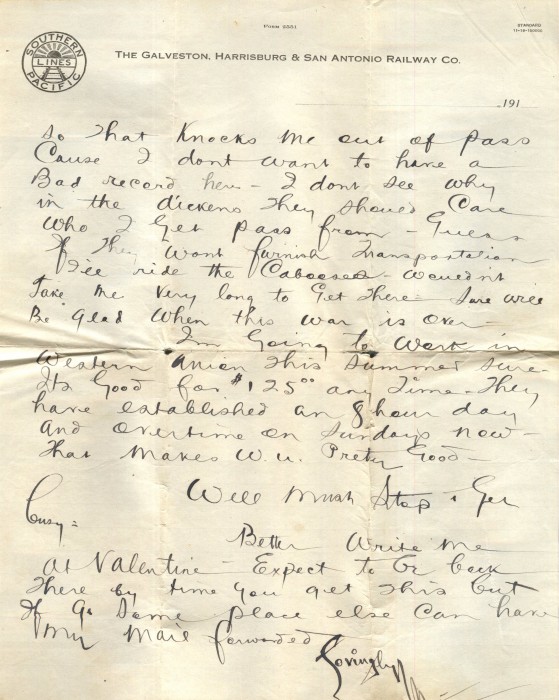 FORM 2551
STANDARD
SOUTHERN
LINES
PACIFIC
THE GALVESTON, HARRISBURG & SAN ANTONIO RAILWAY CO.
191
So That Knocks Me out of pass
Cause I dont want to have a
Bad record here - I dont see why
in the dickens They should Care
who I Get pass from - Guess
If They Wont furnish Transportation
I'll ride the Cabooses - wouldn't
Take Me Very long to Get There - Sure will
Be Glad When this war is over -
Im Going to Work in
Western Union this summer sure
Its Good for $125.00 any Time. They
have established an 8 hour day
and overtime on Sundays now -
That Makes W.U. Prety Good -
Well Must Stop & Get
Busy =
Better Write Me
at Valentine - Expect to be back
There by time you get This but
If go Some place else Can have
My Mail forwarded
Lovingly